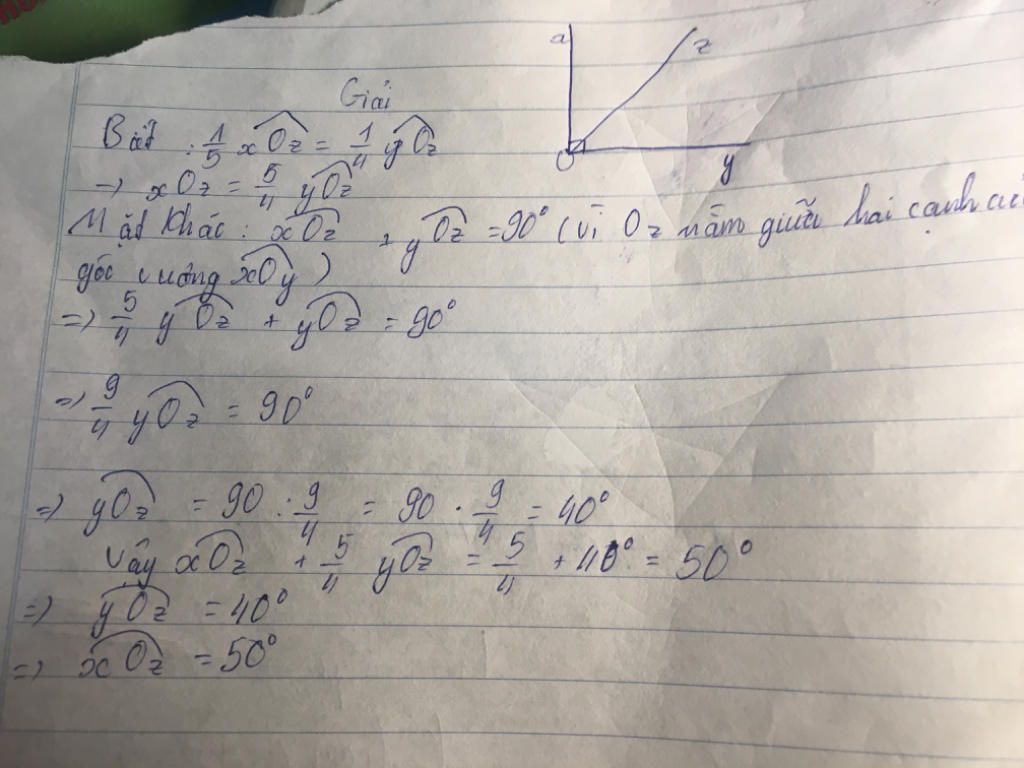 a
z
O
y
Giải
Biết : 1/5 xOz = 1/4 yOz
=> xOz = 5/4 yOz
Mặt khác : xOz + yOz = 90° (vì Oz nằm giữa hai cạnh của
góc vuông xOy)
=> 5/4 yOz + yOz = 90°
=> 9/4 yOz = 90°
=> yOz = 90 : 9/4 = 90 . 9/4 = 40°
Vậy xOz + 5/4 yOz = 5/4 + 40° = 50°
=> yOz = 40°
=> xOz = 50°